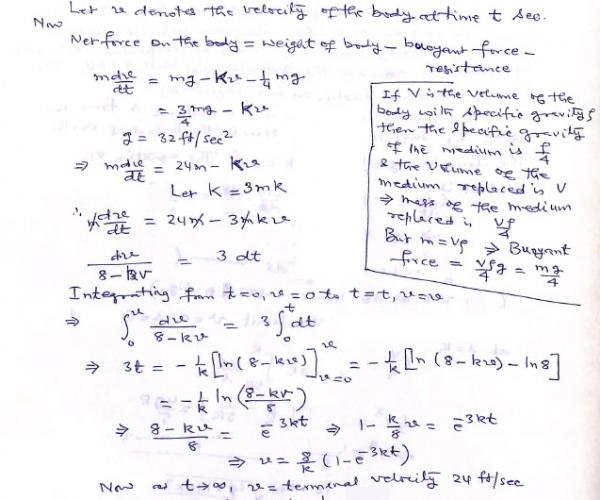 Let v denotes the velocity of the body at time t sec.
Now
Net force on the body = weight of body - buoyant force -
resistance
m dv/dt = mg - Kv - 1/4 mg
= 3/4 mg - Kv
g = 32 ft/sec²
⇒ m dv/dt = 24m - Kv
Let K = 3mk
∴ m dv/dt = 24m - 3mkv
dv/(8-kv) = 3 dt
If V is the volume of the
body with specific gravity ρ
then the specific gravity
of the medium is ρ/4
& the volume of the
medium replaced is V
⇒ mass of the medium
replaced is Vρ/4
But m = Vρ ⇒ Buoyant
force = Vρg/4 = mg/4
Integrating from t=0, v=0 to t=t, v=v
⇒ ∫₀ᵛ dv/(8-kv) = 3∫₀ᵗ dt
⇒ 3t = -1/k [ln(8-kv)]ᵛᵥ₌₀ = -1/k [ln(8-kv) - ln8]
= -1/k ln((8-kv)/8)
⇒ (8-kv)/8 = e^-3kt ⇒ 1 - k/8 v = e^-3kt
⇒ v = 8/k (1-e^-3kt)
Now as t→∞, v = terminal velocity 24 ft/sec